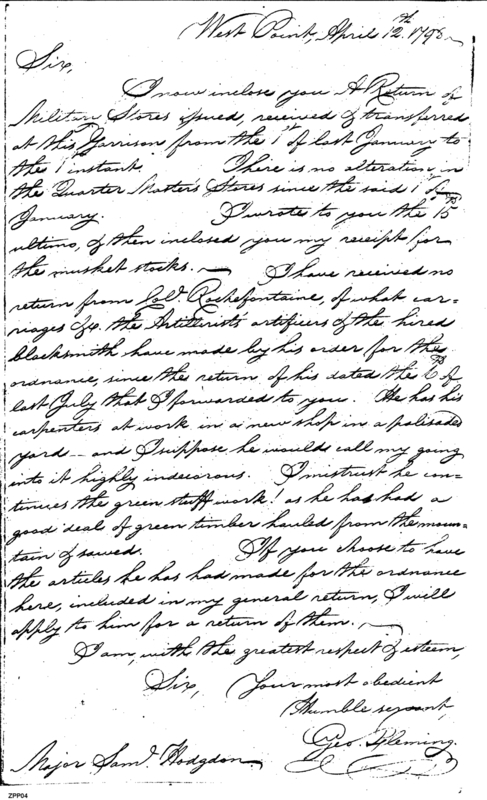 West Point, April 12th 1798
Sir,
I now inclose you A Return of
Military Stores issued, received & transferred
at this Garrison from the 1st of last January to
the 1st instant. There is no alteration in
the Quarter Master's Stores since the said 1st of
January. I wrote to you the 15th
ultimo, & then inclosed you my receipt for
the musket stocks. — I have received no
return from Col. Rochefontaine, of what car=
riages &c. the Artillerists artificers & the hired
blacksmith have made by his order for the
ordnance, since the return of his dated the 6th of
last July that I forwarded to you. He has his
carpenters at work in a new shop in a palisaded
yard — and I suppose he would call my going
into it highly indecorous. I mistrust he con=
tinues the green stuff work! as he has had a
good deal of green timber hauled from the moun=
tain & sawed. If you choose to have
the articles he has had made for the ordnance
here, included in my general return, I will
apply to him for a return of them. —
I am, with the greatest respect & esteem,
Sir, Your most obedient
Humble servant,
Geo. Fleming.
Major Saml. Hodgdon.
ZPP04